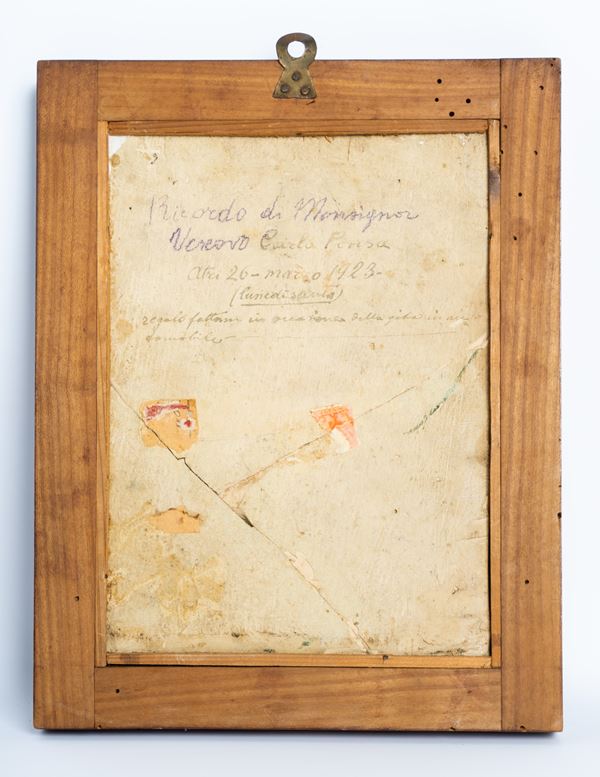 Ricordo di Monsignor
Vescovo Carlo Pensa
Atri 26 - marzo 1923 -
(lunedi santo)
regalo fattomi in occasione della gita in au
tomobile